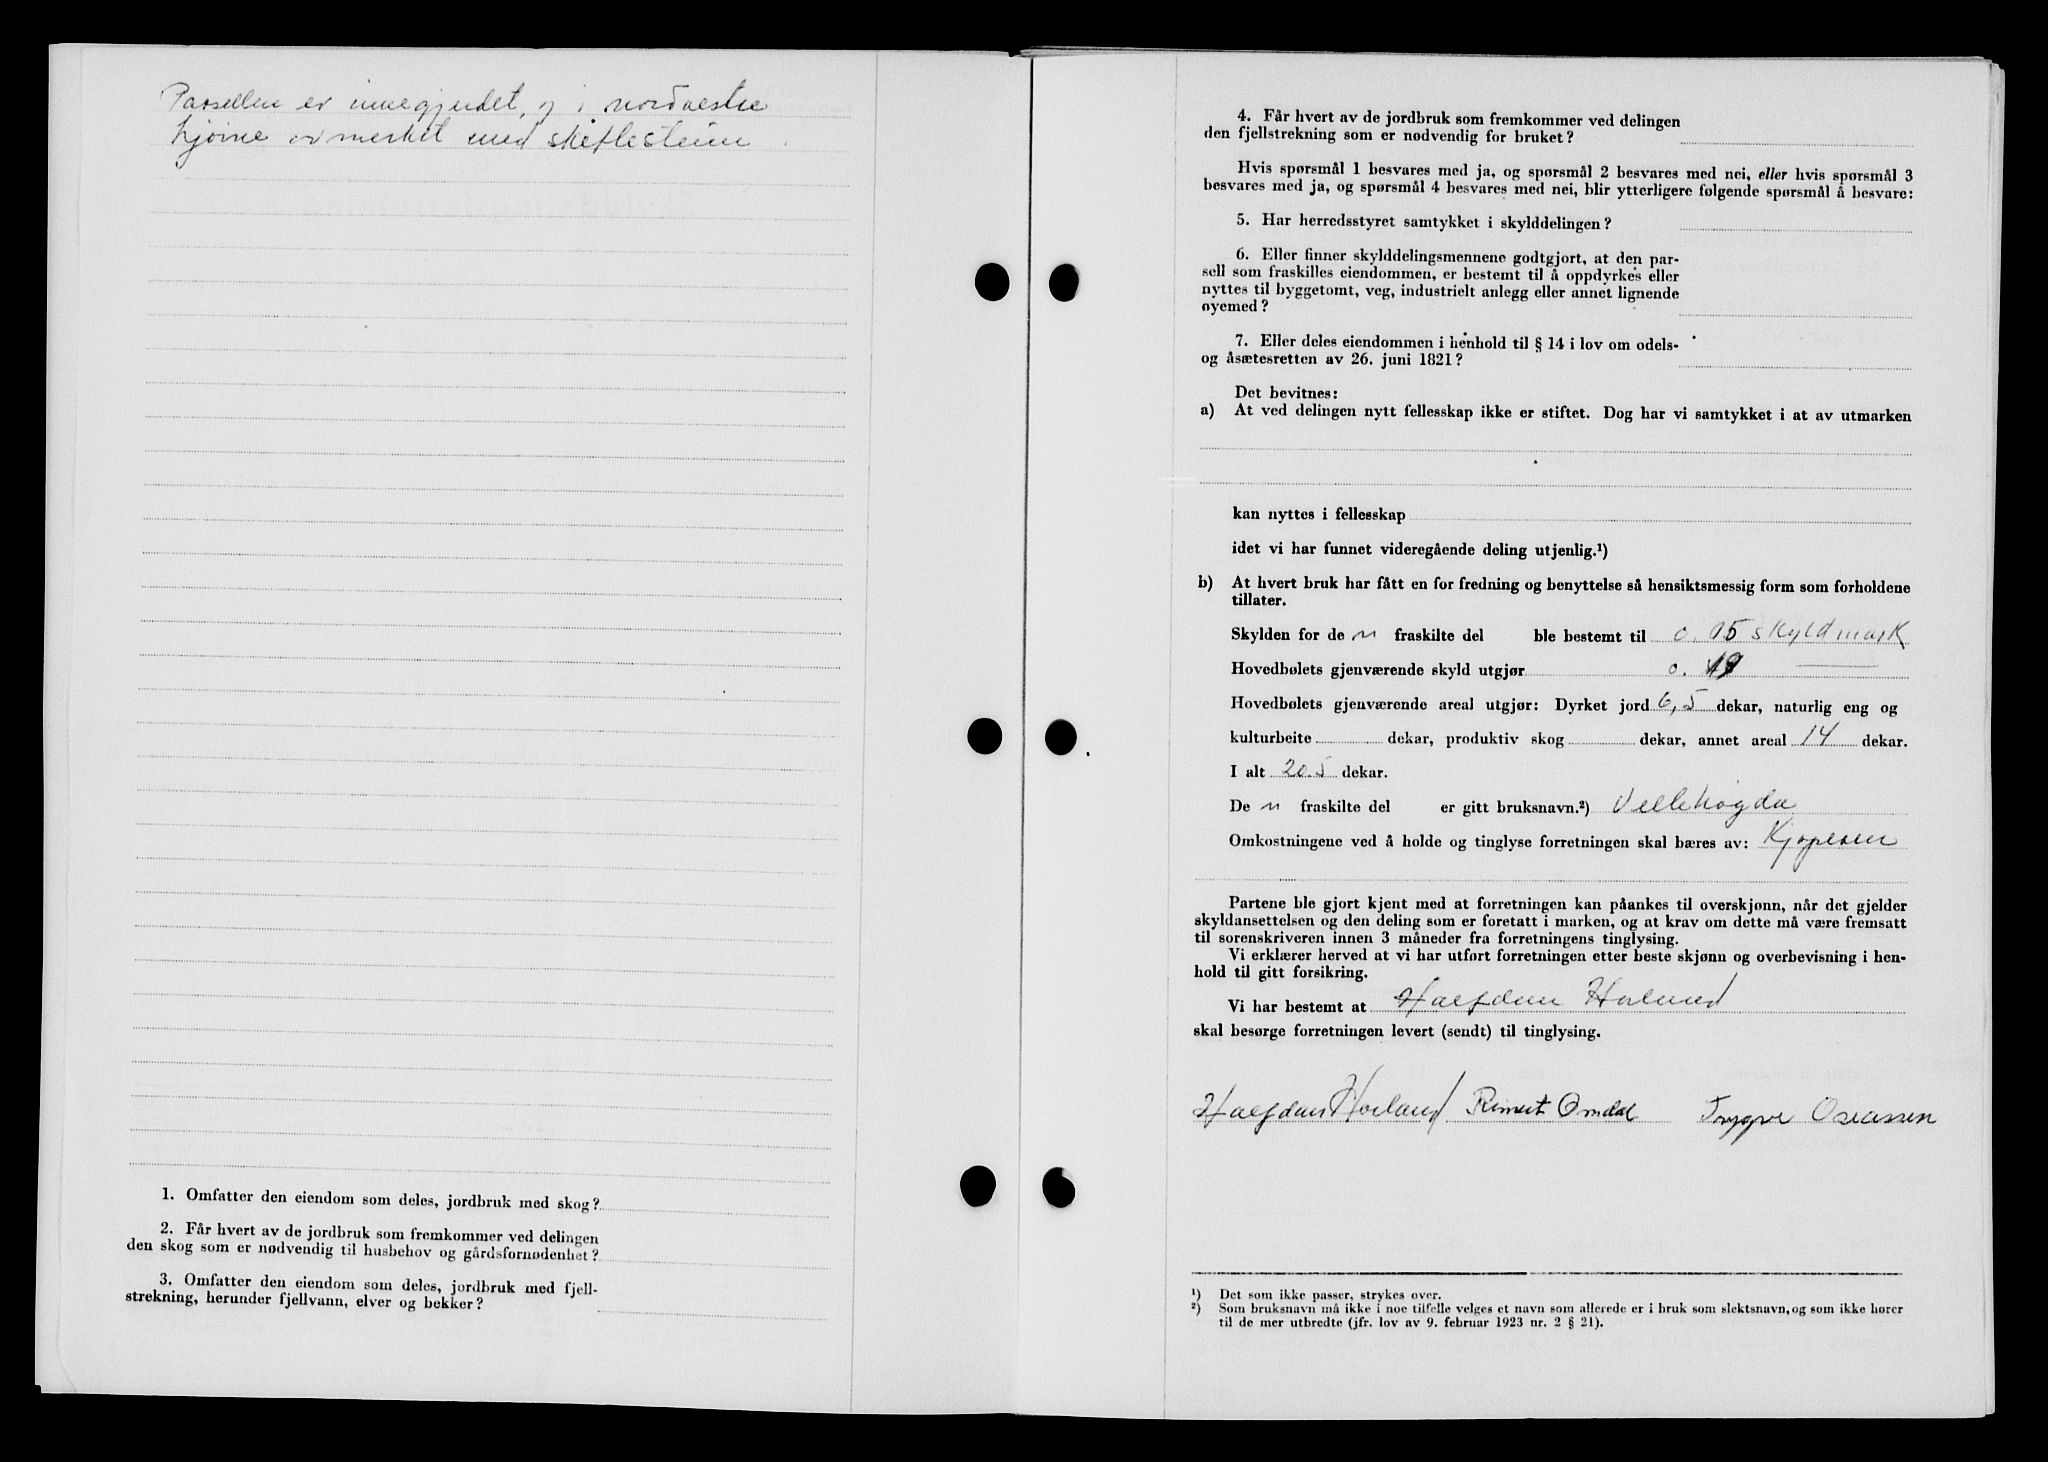 Parsellen er innegjerdet, og i nordvestre
hjørne er merket med skiftestein.
1. Omfatter den eiendom som deles, jordbruk med skog?
2. Får hvert av de jordbruk som fremkommer ved delingen
den skog som er nødvendig til husbehov og gårdsfornødenhet?
3. Omfatter den eiendom som deles, jordbruk med fjell-
strekning, herunder fjellvann, elver og bekker?
4. Får hvert av de jordbruk som fremkommer ved delingen
den fjellstrekning som er nødvendig for bruket?
Hvis spørsmål 1 besvares med ja, og spørsmål 2 besvares med nei, eller hvis spørsmål 3
besvares med ja, og spørsmål 4 besvares med nei, blir ytterligere følgende spørsmål å besvare:
5. Har herredsstyret samtykket i skylddelingen?
6. Eller finner skylddelingsmennene godtgjort, at den par-
sell som fraskilles eiendommen, er bestemt til å oppdyrkes eller
nyttes til byggetomt, veg, industrielt anlegg eller annet lignende
øyemed?
7. Eller deles eiendommen i henhold til § 14 i lov om odels-
og åsætesretten av 26. juni 1821?
Det bevitnes:
a) At ved delingen nytt fellesskap ikke er stiftet. Dog har vi samtykket i at av utmarken
kan nyttes i fellesskap
idet vi har funnet videregående deling utjenlig.¹)
b) At hvert bruk har fått en for fredning og benyttelse så hensiktsmessig form som forholdene
tillater.
Skylden for de n fraskilte del ble bestemt til 0.15 skyldmark
Hovedbølets gjenværende skyld utgjør 0.19
Hovedbølets gjenværende areal utgjør: Dyrket jord 6,5 dekar, naturlig eng og
kulturbeite dekar, produktiv skog dekar, annet areal 14 dekar.
I alt 20.5 dekar.
De n fraskilte del er gitt bruksnavn.²) Vellehøgda
Omkostningene ved å holde og tinglyse forretningen skal bæres av: Kjøperen
Partene ble gjort kjent med at forretningen kan påankes til overskjønn, når det gjelder
skyldansettelsen og den deling som er foretatt i marken, og at krav om dette må være fremsatt
til sorenskriveren innen 3 måneder fra forretningens tinglysing.
Vi erklærer herved at vi har utført forretningen etter beste skjønn og overbevisning i hen-
hold til gitt forsikring.
Vi har bestemt at Halfdan Horland
skal besørge forretningen levert (sendt) til tinglysing.
Halfdan Horland Reinert Omdal Trygve Oseassen
¹) Det som ikke passer, strykes over.
²) Som bruksnavn må ikke i noe tilfelle velges et navn som allerede er i bruk som slektsnavn, og som ikke hører
til de mer utbredte (jfr. lov av 9. februar 1923 nr. 2 § 21).